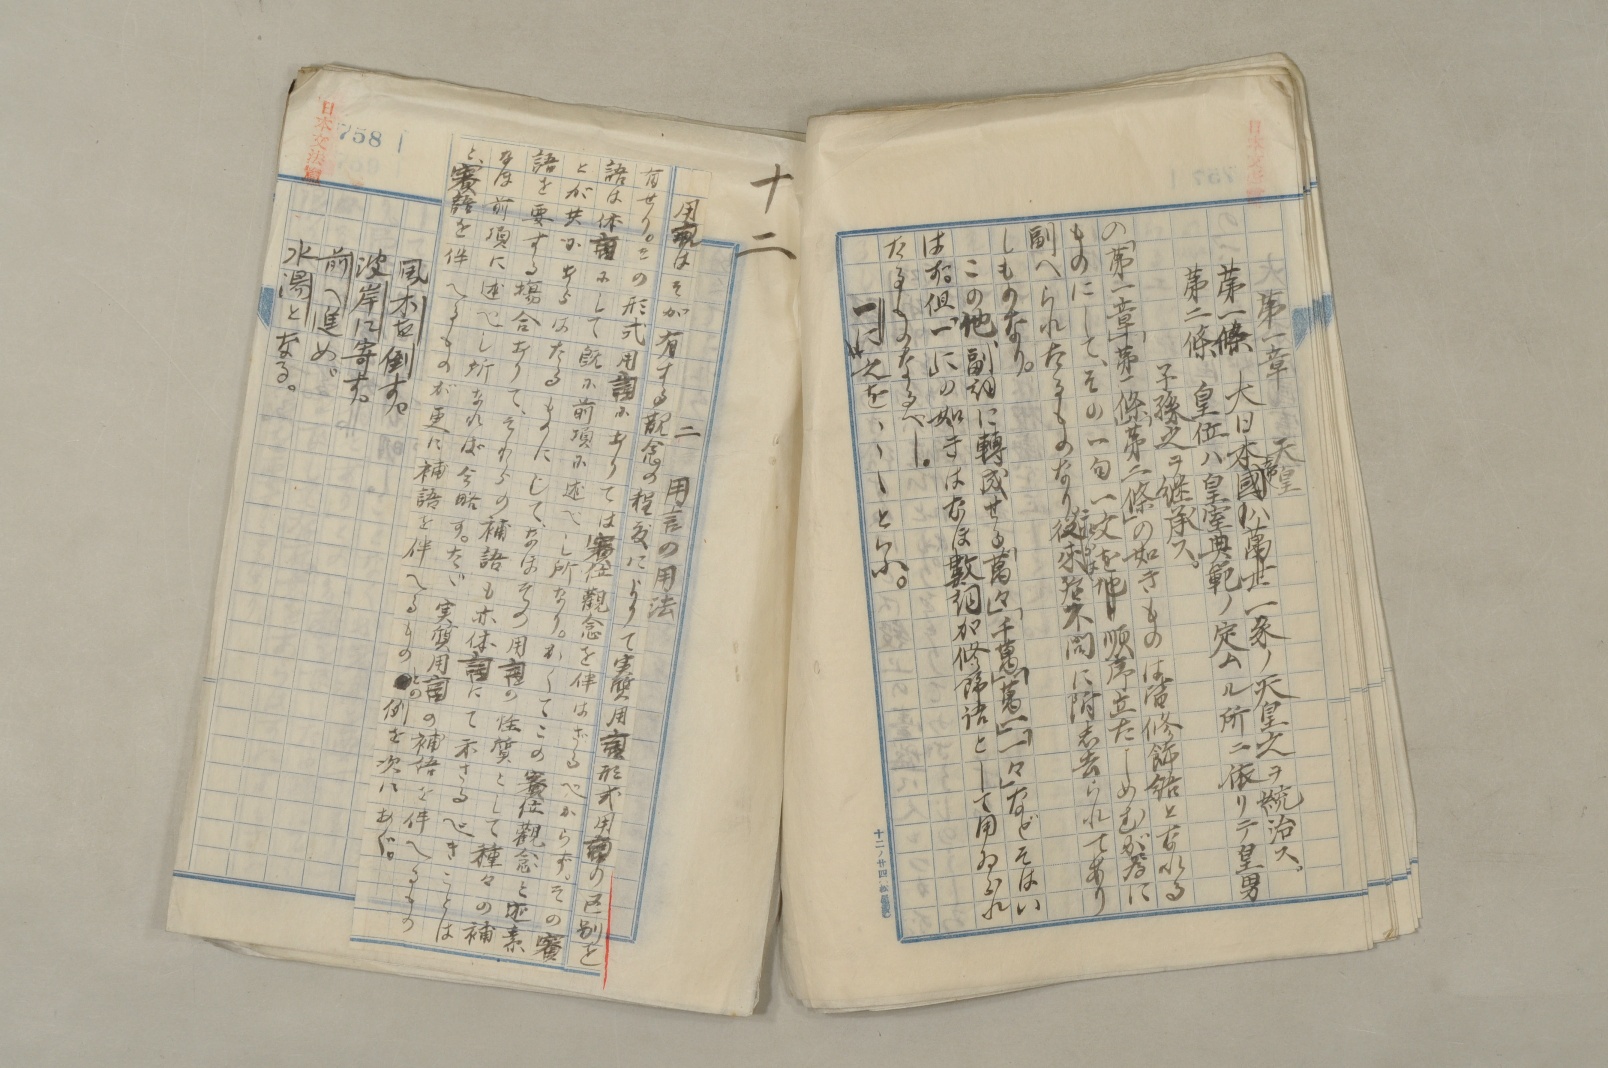 第一章　天皇
第一條　大日本國ハ萬世一系ノ天皇之ヲ統治ス、
第二條　皇位ハ皇室典範ノ定ムル所ニ依リテ皇男
子孫之ヲ継承ス、
の「第一章」「第一條」「第二條」の如きものは富修飾語となれる
ものにして、その一句一文を地の順序立たしめむが為に
副へられたるものなり
しものなり。
この他、副詞に轉成せる「萬々」「千萬」「萬一」「一々」などそはい
は「一に」の如きはなほ數詞が修飾語として用ゐられ
たるものなるべし。
十二ノ廿四
十二
日本文法論
758
二　用言の用法
用言はそが有する觀念の程度によりて実質用言形式用言の区別を
有せり。この形式用言にありては賓位觀念を伴はざるべからず。その賓
語は体言にして既に前項に述べし所なり。かくてこの賓位觀念と述素
とが共にあらはれたるものにして、なほその用言の性質として種々の補
語を要する場合ありて、それらの補語も亦体言にて示さるべきことは
なほ前項に述べし所なれば今略す。たゞ実質用言の補語を伴へるもの
と、賓語を伴へるものが更に補語を伴へるものの例を次にあぐ。
風木を倒す。
波岸に寄す。
前へ進め。
水湯となる。